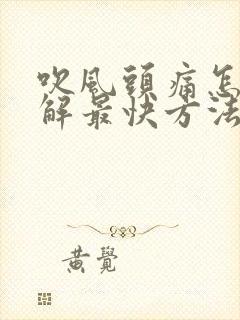 吹風頭痛怎
解最快方法
黄覺